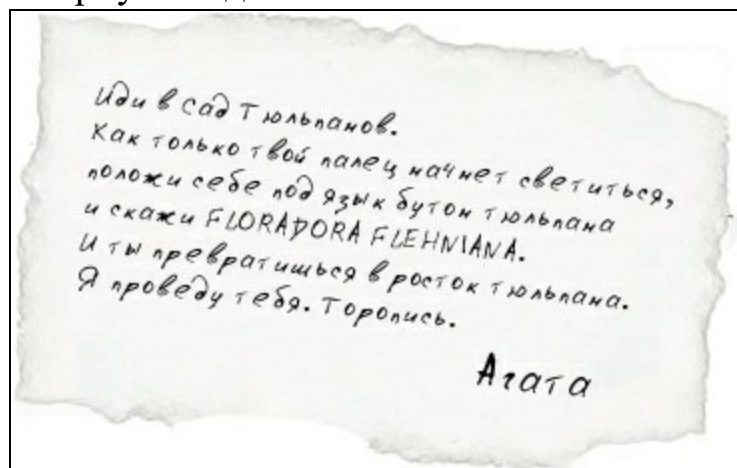 Иди в сад Тюльпанов.
Как только твой палец начнет светиться,
положи себе под язык бутон тюльпана
и скажи FLORADORA FLEHNIANA.
И ты превратишься в росток тюльпана.
Я проведу тебя. Торопись.
Агата